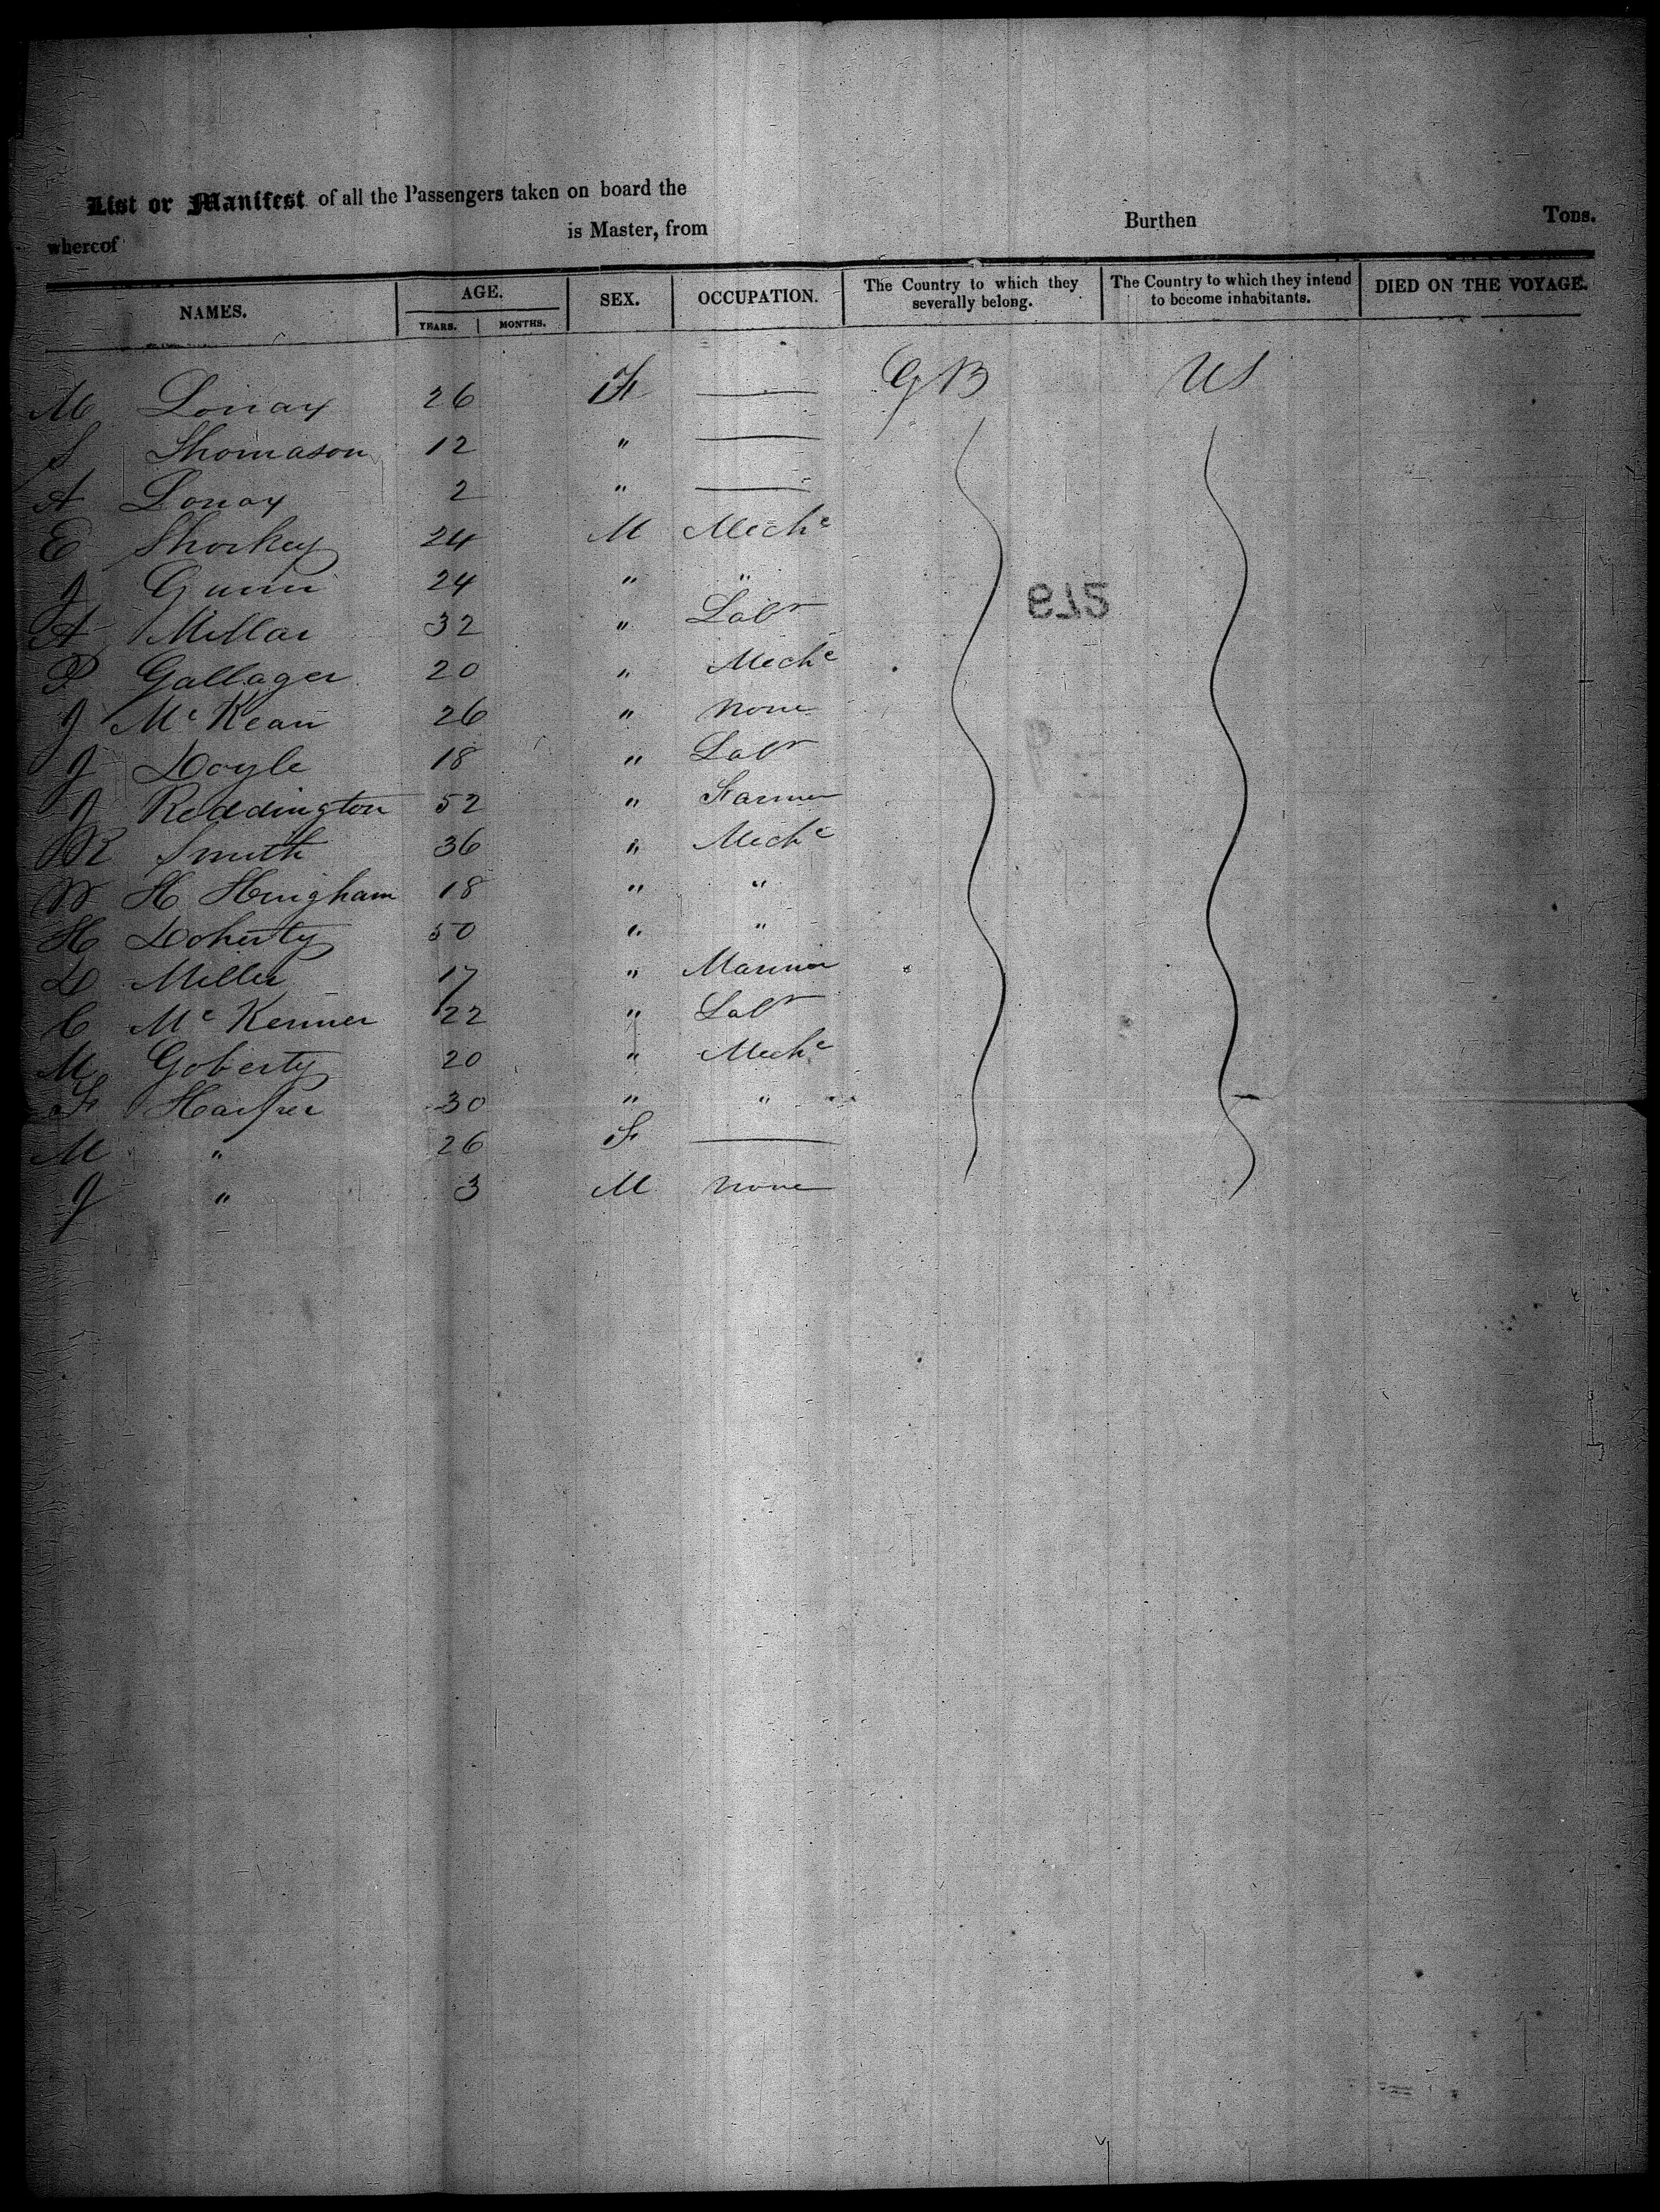 List or Manifest of all the Passengers taken on board the
whereof is Master, from Burthen Tons.
NAMES. AGE. SEX. OCCUPATION. The Country to which they severally belong. The Country to which they intend to become inhabitants. DIED ON THE VOYAGE.
YEARS. MONTHS.
M 26 F — GB US
S Thomason 12 " —
A 2 " —
E Shorkey 24 M Mechc
J Gunn 24 " "
A Millar 32 " Labr
P Gallager 20 " Mechc
J McKean 26 " none
J Doyle 18 " Labr
J Reddington 52 " Farmer
R Smith 36 " Mechc
W H Hingham 18 " "
H Doherty 50 " "
D Miller 17 " Mariner
C McKenner 22 " Labr
M Goherty 20 " Mechc
F 30 " "
M " 26 F —
J " 3 M none
612